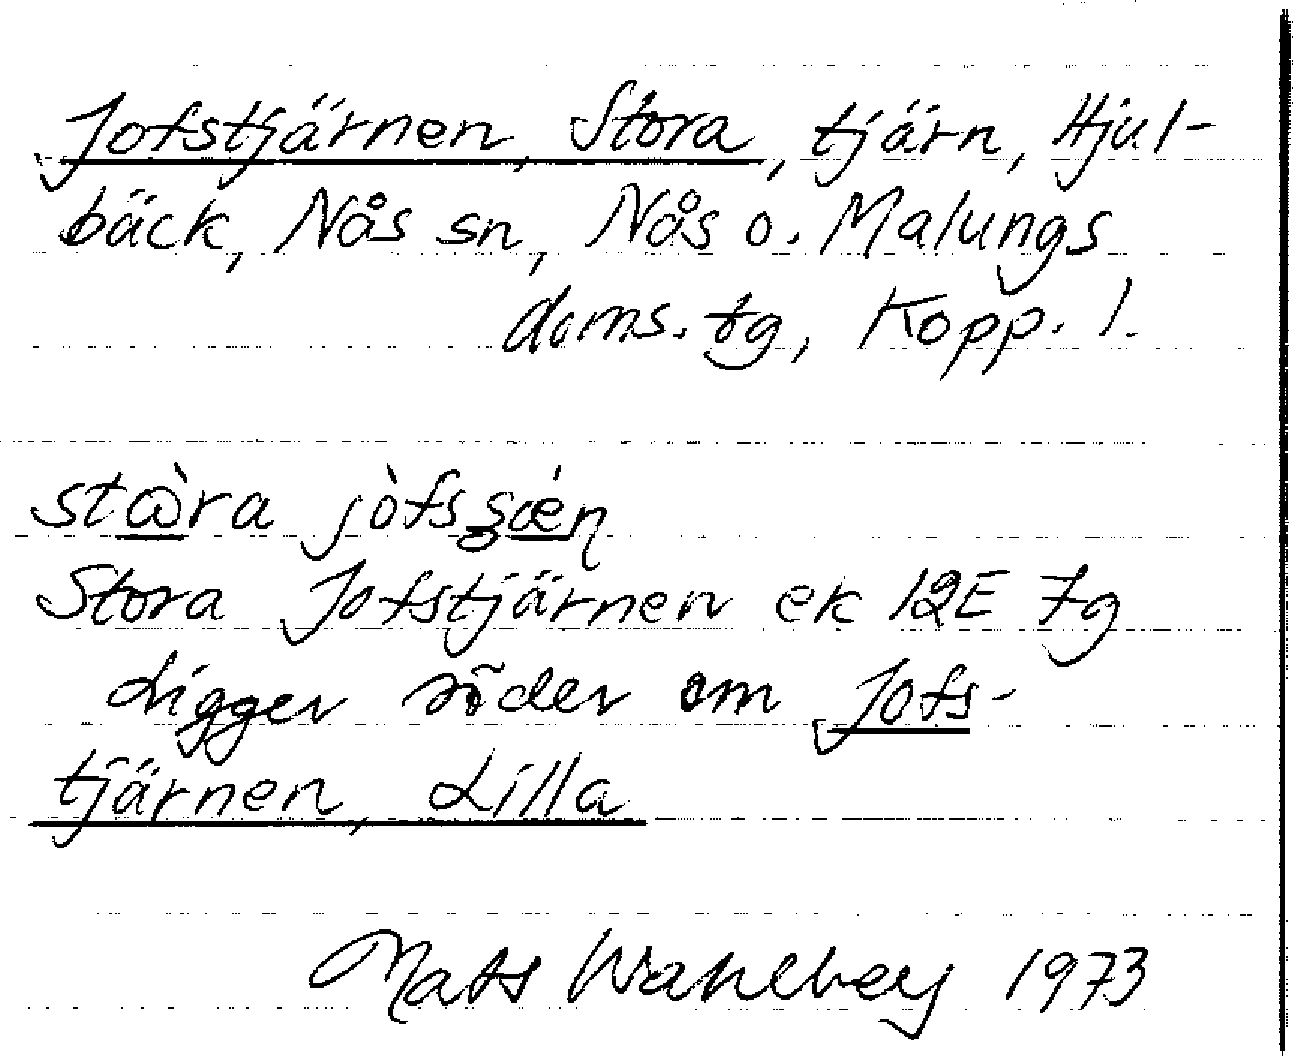 Jofstjärnen, Stora, tjärn, Hjul-
bäck, Nås sn, Nås o. Malungs
doms. tg, Kopp. l.
Stora Jofstjärnen ek 12E 7g
Ligger söder om Jofs-
tjärnen, Lilla
Mats Wahlberg 1973